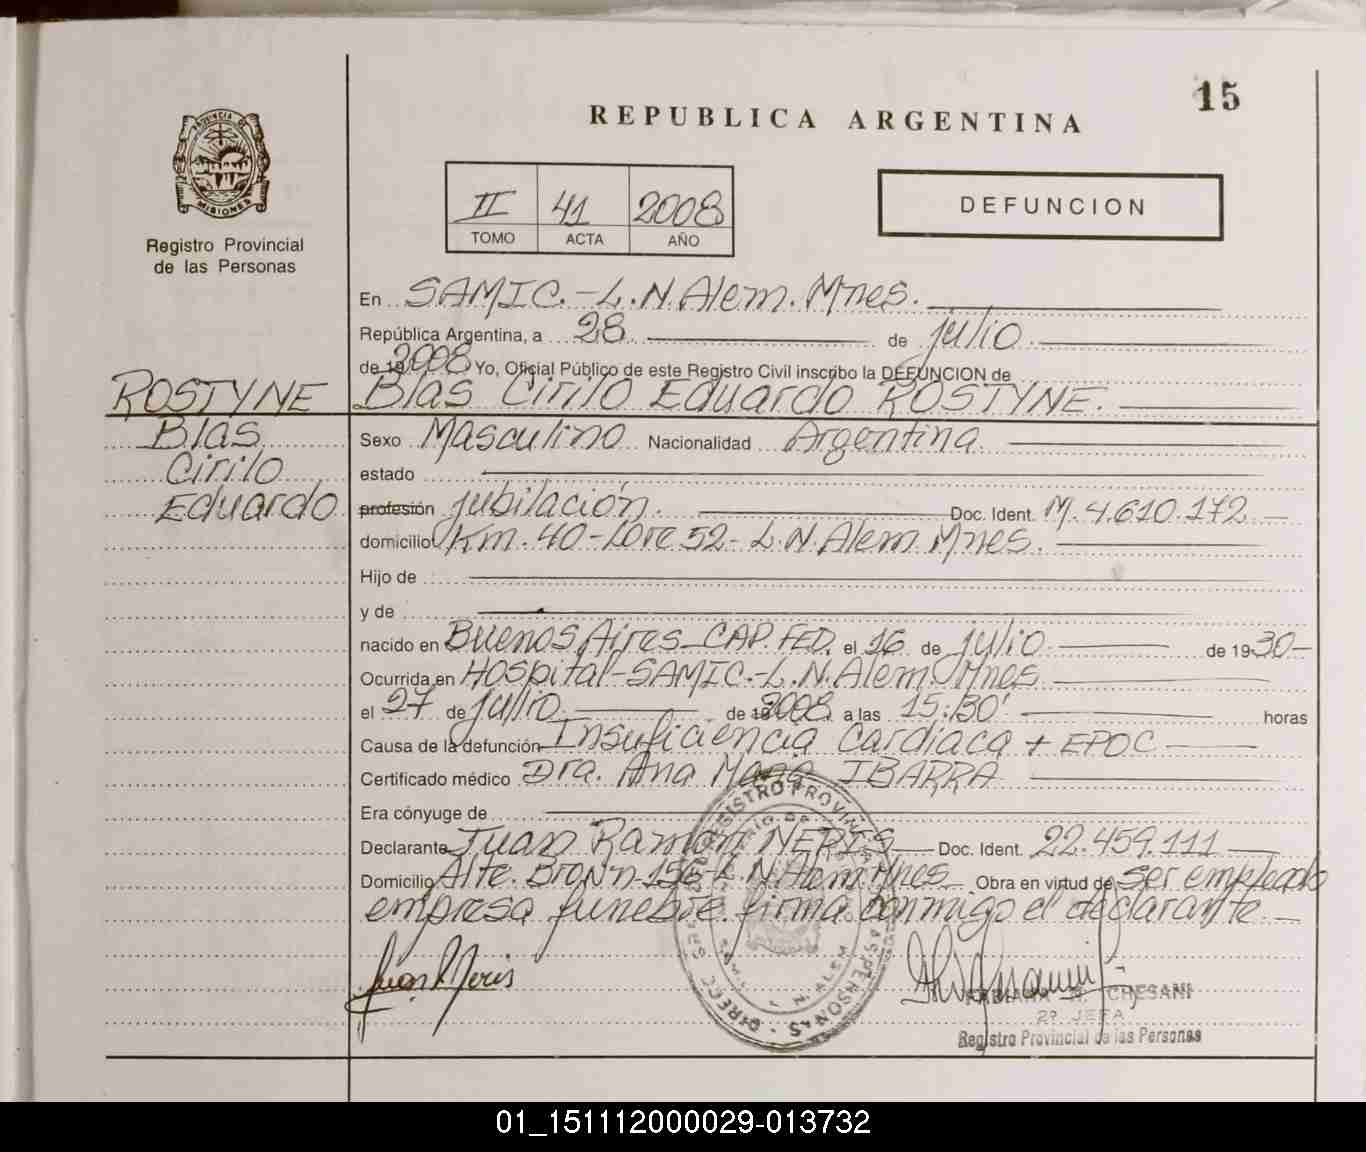 15
REPUBLICA ARGENTINA
PROVINCIA DE
MISIONES
Registro Provincial
de las Personas
II 41 2008
TOMO ACTA AÑO
DEFUNCION
En SAMIC.-L.N.Alem.Mnes.
República Argentina, a 28 de julio
de 19 2008 Yo, Oficial Público de este Registro Civil inscribo la DEFUNCION de
ROSTYNE Blas Cirilo Eduardo ROSTYNE.
Blas Sexo Masculino Nacionalidad Argentina
Cirilo estado
Eduardo profesión jubilación. Doc. Ident. M. 4.610.172
domicilio Km. 40-Lote 52- L.N.Alem Mnes.
Hijo de
y de
nacido en Buenos Aires-CAP.FED. el 16 de julio de 1930-
Ocurrida en Hospital-SAMIC.-L.N.Alem Mnes
el 27 de julio de 19 2008 a las 15:30' horas
Causa de la defunción Insuficiencia Cardiaca + EPOC
Certificado médico Dra. Ana Maria IBARRA
Era cónyuge de
Declarante Juan Ramón NERIS Doc. Ident. 22.459.111
Domicilio Alte. Brown-156-L.N.Alem Mnes Obra en virtud de ser empleado
empresa funebre. firma conmigo el declarante.
Juan R Neris
REGISTRO PROVINCIAL
PERSONAS
N. ALEM
FABIANA N. CHESANI
2ª JEFA
Registro Provincial de las Personas
01_151112000029-013732